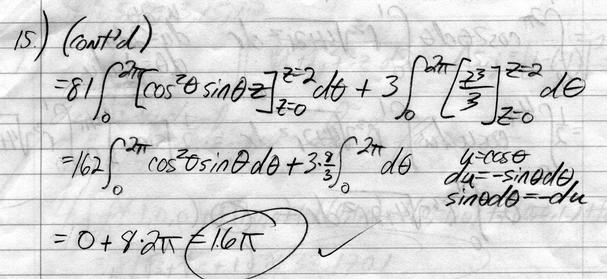 15.) (cont'd)
=81∫₀^2π [cos²θ sinθ z]_z=0^z=2 dθ + 3∫₀^2π [z³/3]_z=0^z=2 dθ
=162∫₀^2π cos²θ sinθ dθ + 3·8/3∫₀^2π dθ
u=cosθ
du=-sinθdθ
sinθdθ=-du
= 0 + 8·2π = 16π ✓